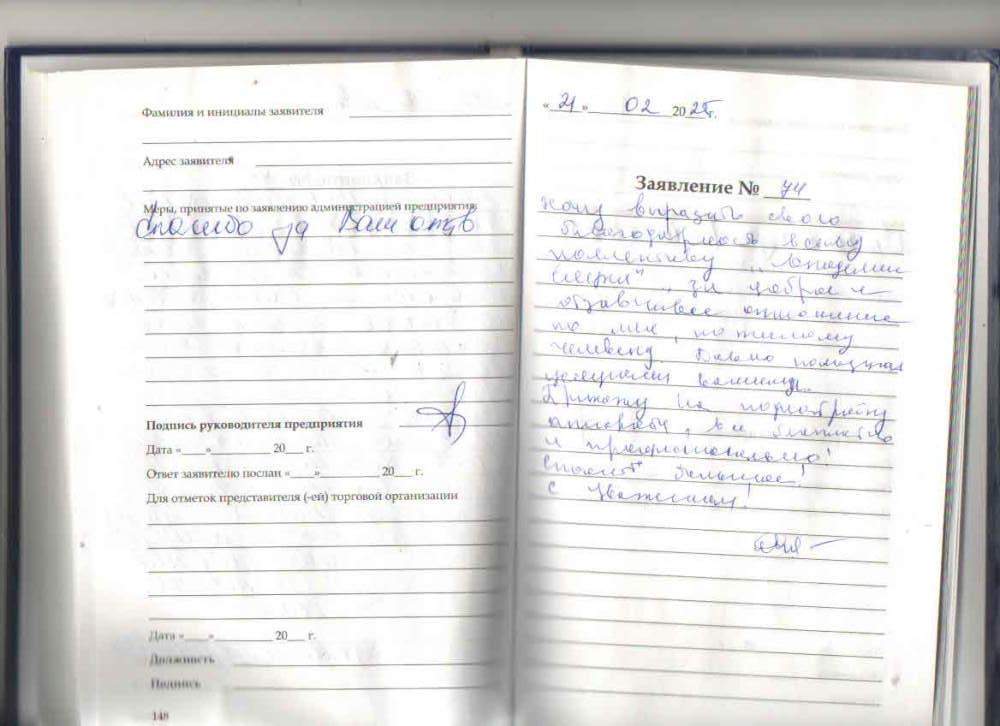 Фамилия и инициалы заявителя
Адрес заявителя
Меры, принятые по заявлению администрацией предприятия:
Спасибо за Ваш отзыв
Подпись руководителя предприятия
Дата «____»__________ 20___ г.
Ответ заявителю послан «____»__________ 20___ г.
Для отметок представителя (-ей) торговой организации
Дата «____»__________ 20___ г.
Должность
Подпись
148
«21» 02 2025г.
Заявление № 74
Хочу выразить свою
благодарность всему
коллективу „Академии
за доброе и
отзывчивое отношение
ко мне, пожилому
человеку. Давно пользуюсь
услугами вашими.
Прихожу на
, все
и профессионально!
Спасибо большое!
С уважением!